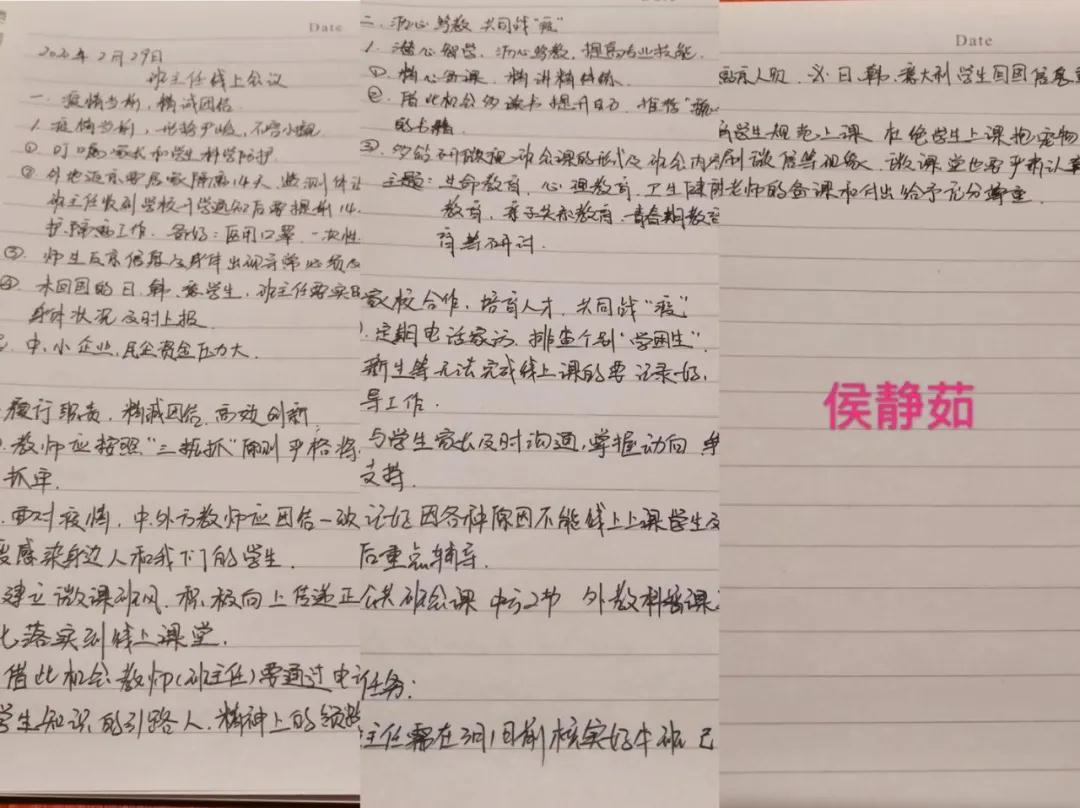 Date
2020年2月29日
班主任线上会议
一、疫情当前，精诚团结
1. 疫情当前，形势严峻，不容小觑
① 叮嘱家长和学生科学防护
② 外地返京要居家隔离14天，监测体
班主任收到学校开学通知后要提前14
备好：医用口罩、一次性
③ 师生返京信息及身体出现异常必须
④ 未回国的日、韩、意学生，班主任要
身体状况及时上报
中、小企业，民企资金压力大.
履行职责，精诚团结，高效创新
教师应按照“三抓抓”原则严格将
面对疫情，中.外方教师应团结一致
感染身边人和我们的学生.
建立微课班风，积极向上传递正
落实到线上课堂.
借此机会教师(班主任)要通过电
学生知识的引路人.精神上的领
二、沥心努教 共同战“疫”
1. 潜心智学，沥心努教，提高专业技能.
① 精心备课，精讲精练.
② 借此机会多读书提升自己，推荐
的书籍.
③ 班会课的形式及班会内
主题：生命教育，心理教育，卫生健
教育，亲子关系教育，青春期教
育等研讨.
家校合作，培育人才，共同战“疫”
定期电话家访，排查个别“学困生”.
新生等无法完成线上课的要记录好，
导工作.
与学生家长及时沟通，掌握动向
支持.
记好因各种原因不能线上上课学生
后重点辅导.
班会课 中方2节 外教科普课
任务:
主任需在3月1日前核实好本班已
Date
返京人员，及日、韩、意大利学生回国信息
学生规范上课，杜绝学生上课抱宠物
刷微信等现象，微课堂也要严肃认真
老师的备课和付出给予充分尊重.
侯静茹